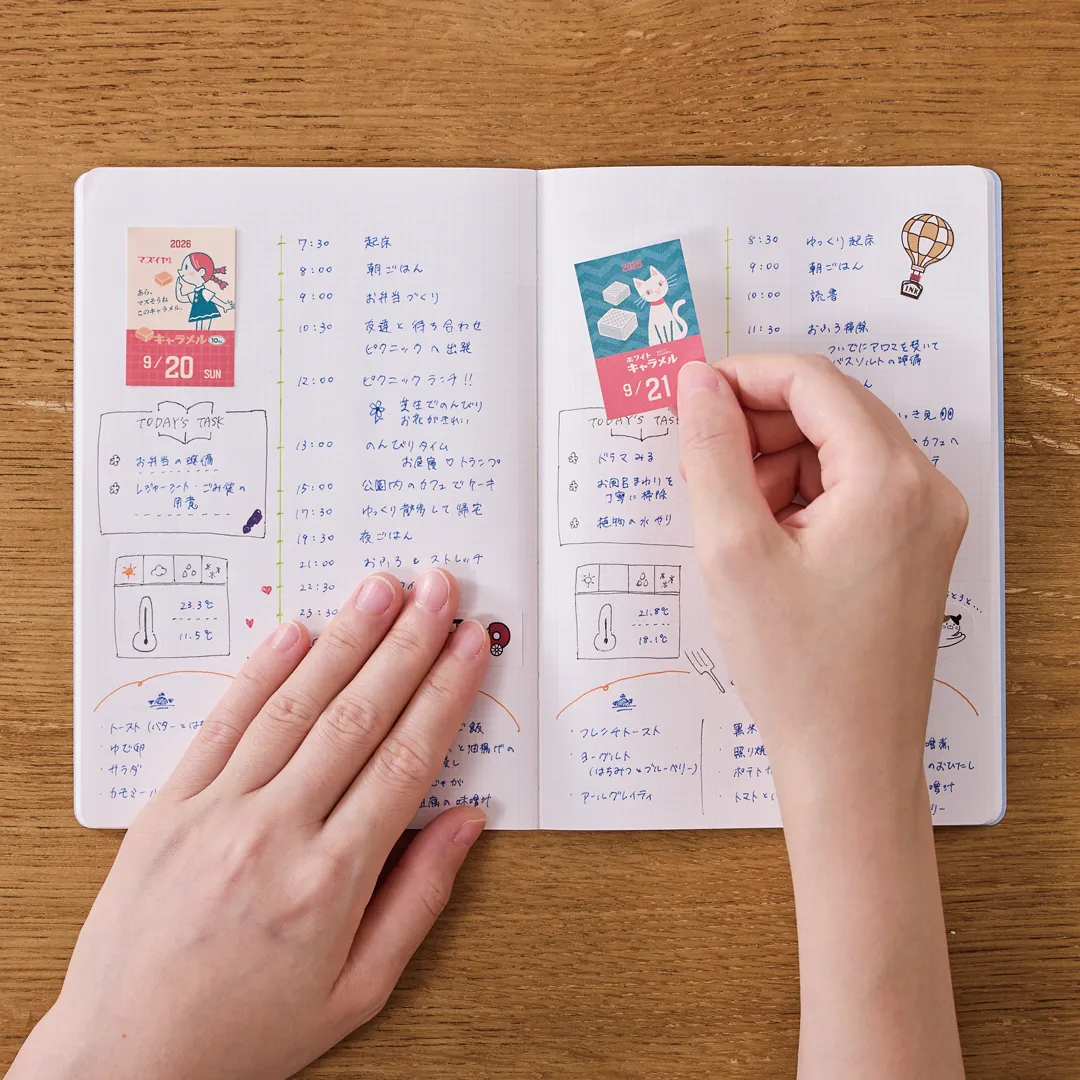 2026
マズイヤ!
あら、
マズそうね
このキャラメル。
キャラメル 10
9/20 SUN
TODAY'S TASK
お弁当の準備
レジャーシート・ごみ袋の
用意
23.3℃
11.5℃
7:30 起床
8:00 朝ごはん
9:00 お弁当づくり
10:30 友達と待ち合わせ
ピクニックへ出発
12:00 ピクニックランチ!!
芝生でのんびり
お花がきれい
13:00 のんびりタイム
お昼寝♡トランプ
15:00 公園内のカフェでケーキ
17:30 ゆっくり散歩して帰宅
19:30 夜ごはん
21:00 おふろ & ストレッチ
22:30
23:30
・トースト(バターとは
・ゆで卵
・サラダ
・カモミール
ご飯
と油揚げの
じゃが
豆腐の味噌汁
2026
ホワイト
キャラメル
9/21
TODAY'S TASK
ドラマみる
お風呂まわりを
丁寧に掃除
植物の水やり
21.8℃
18.1℃
8:30 ゆっくり起床
9:00 朝ごはん
10:00 読書
11:30 おふろ掃除
ついでにアロマを焚いて
バスソルトの準備
ん
っき見
カフェへ
INK
・フレンチトースト
ヨーグルト
(はちみつとブルーベリー)
・アールグレイティ
・黒米
・照り焼
・ポテト
・トマトと
噌煮
のおひたし
噌汁
リー